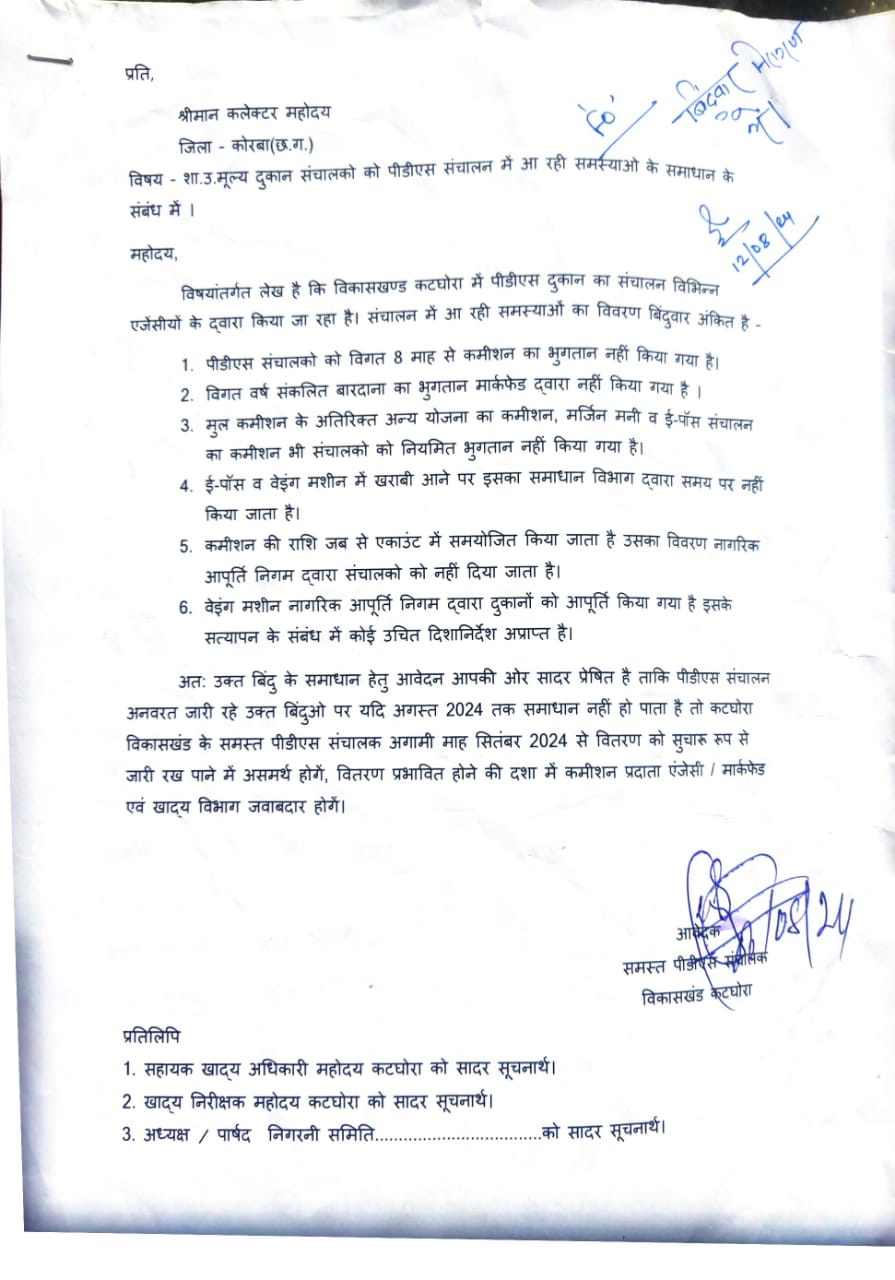 प्रति,
श्रीमान कलेक्टर महोदय
जिला - कोरबा(छ.ग.)
विषय - शा.उ.मूल्य दुकान संचालको को पीडीएस संचालन में आ रही समस्याओ के समाधान के
संबंध में ।
12/08/24
महोदय,
विषयांतर्गत लेख है कि विकासखण्ड कटघोरा में पीडीएस दुकान का संचालन विभिन्न
एजेंसीयों के द्वारा किया जा रहा है। संचालन में आ रही समस्याओं का विवरण बिंदुवार अंकित है -
1. पीडीएस संचालको को विगत 8 माह से कमीशन का भुगतान नहीं किया गया है।
2. विगत वर्ष संकलित बारदाना का भुगतान मार्कफेड द्वारा नहीं किया गया है ।
3. मुल कमीशन के अतिरिक्त अन्य योजना का कमीशन, मर्जिन मनी व ई-पॉस संचालन
का कमीशन भी संचालको को नियमित भुगतान नहीं किया गया है।
4. ई-पॉस व वेइंग मशीन में खराबी आने पर इसका समाधान विभाग द्वारा समय पर नहीं
किया जाता है।
5. कमीशन की राशि जब से एकाउंट में समयोजित किया जाता है उसका विवरण नागरिक
आपूर्ति निगम द्वारा संचालको को नहीं दिया जाता है।
6. वेइंग मशीन नागरिक आपूर्ति निगम द्वारा दुकानों को आपूर्ति किया गया है इसके
सत्यापन के संबंध में कोई उचित दिशानिर्देश अप्राप्त है।
अत: उक्त बिंदु के समाधान हेतु आवेदन आपकी ओर सादर प्रेषित है ताकि पीडीएस संचालन
अनवरत जारी रहे उक्त बिंदुओ पर यदि अगस्त 2024 तक समाधान नहीं हो पाता है तो कटघोरा
विकासखंड के समस्त पीडीएस संचालक अगामी माह सितंबर 2024 से वितरण को सुचारू रूप से
जारी रख पाने में असमर्थ होगें, वितरण प्रभावित होने की दशा में कमीशन प्रदाता एंजेसी / मार्कफेड
एवं खाद्य विभाग जवाबदार होगें।
आवेदक
समस्त पीडीएस संचालक
विकासखंड कटघोरा
प्रतिलिपि
1. सहायक खाद्य अधिकारी महोदय कटघोरा को सादर सूचनार्थ।
2. खाद्य निरीक्षक महोदय कटघोरा को सादर सूचनार्थ।
3. अध्यक्ष / पार्षद निगरनी समिति...................................को सादर सूचनार्थ।